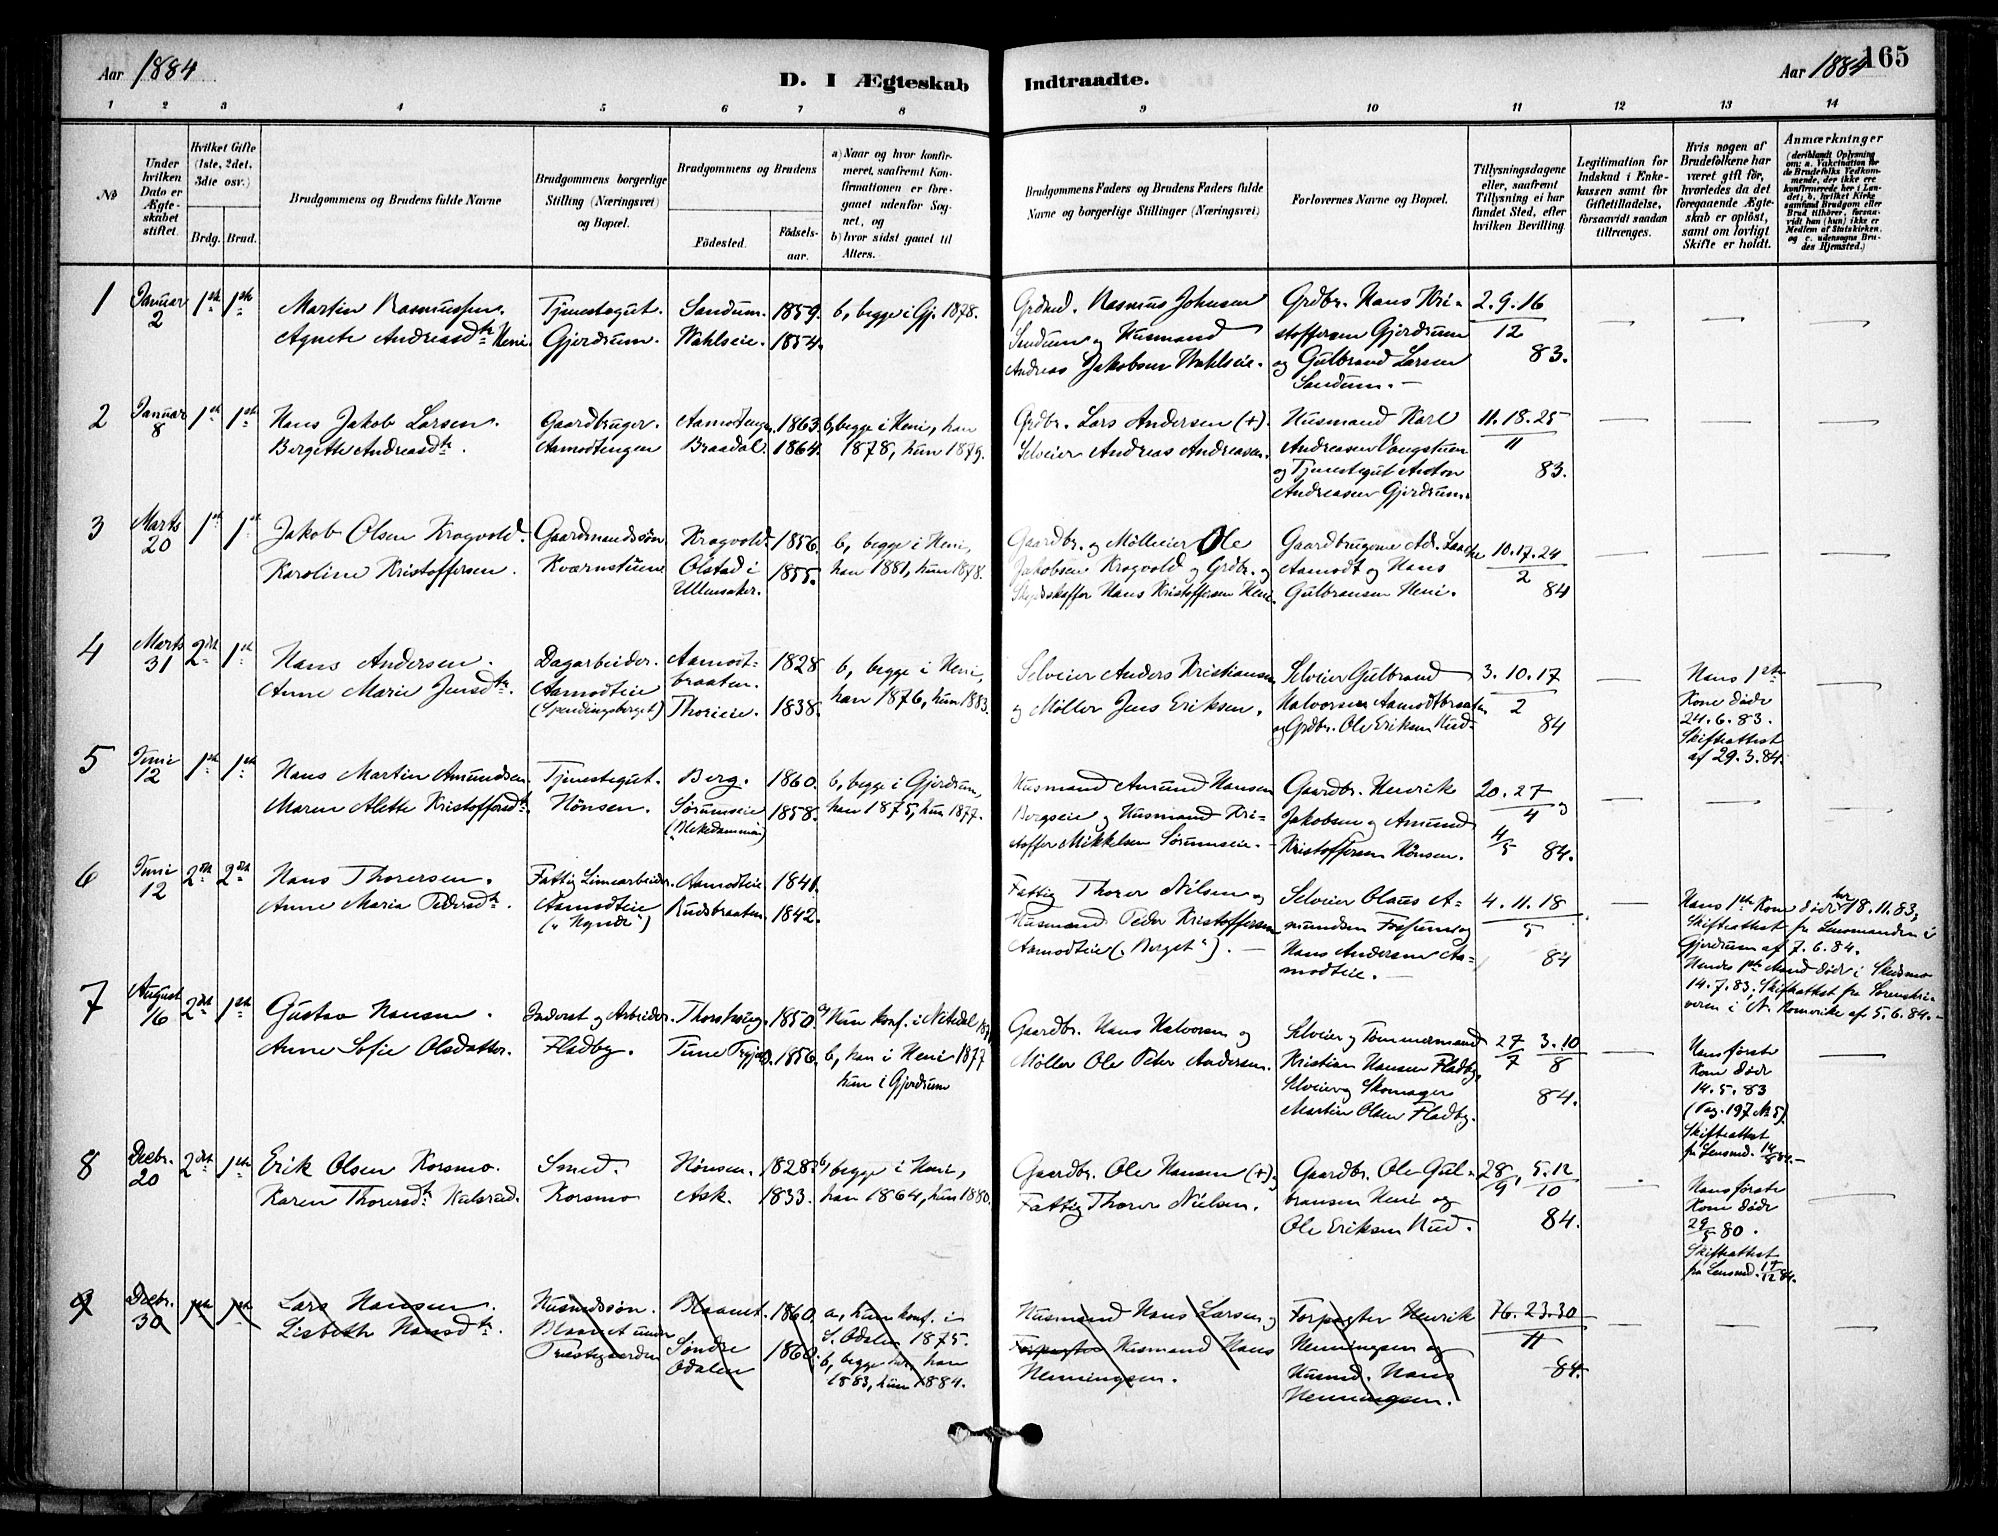 Aar 1884
D. I Ægteskab Indtraadte.
Aar 1884
165
1 2 3 4 5 6 7 8 9 10 11 12 13 14
№
Under hvilken Dato er Ægteskabet stiftet.
Hvilket Gifte (1ste, 2det, 3die osv.)
Brdg. Brud.
Brudgommens og Brudens fulde Navne
Brudgommens borgerlige Stilling (Næringsvei) og Bopæl.
Brudgommens og Brudens
Födested.
Födselsaar.
a) Naar og hvor konfirmeret, saafremt Konfirmationen er foregaaet udenfor Sognet, og
b) hvor sidst gaaet til Alters.
Brudgommens Faders og Brudens Faders fulde Navne og borgerlige Stillinger (Næringsvei)
Forlovernes Navne og Bopæl.
Tillysningsdagene eller, saafremt Tillysning ei har fundet Sted, efter hvilken Bevilling.
Legitimation for Indskud i Enkekassen samt for Giftetilladelse, forsaavidt saadan tiltrænges.
Hvis nogen af Brudefolkene har været gift för, hvorledes da det foregaaende Ægteskab er oplöst, samt om lovligt Skifte er holdt.
Anmærkninger
(deriblandt Oplysning om: a. Vakcination for de Brudefolks Vedkommende, der ikke ere konfirmerede her i Landet; b. hvilket Kirkesamfund Brudgom eller Brud tilhörer, forsaavidt han (hun) ikke er Medlem af Statskirken, og c. udensogns Brudes Hjemsted.)
1 Januar 2 1ste 1ste
Martin Rasmussen.
Agnete Andreasdtr Heni.
Tjenestegut.
Gjerdrum.
Sandum. 1859.
Wahlseie. 1854.
b, begge i Gj. 1878.
Grdmd. Rasmus Johnsen
Sandum og Husmand
Andreas Jakobsen Wahlseie.
Grdbr. Hans Kristoffersen Gjerdrum
og Gulbrand Larsen
Sandum. —
2. 9. 16
12
83.
2 Januar 8 1ste 1ste
Hans Jakob Larsen.
Bergitte Andreasdtr.
Gaardbruger.
Aamodtengen
Aamodtengen 1863.
Braadal. 1864.
b, begge i Heni, han
1878, hun 1879.
Grdbr. Lars Andersen (+).
Selveier Andreas Andreasen.
Husmand Karl
Andreasen Vongstuen
og Tjenestegut Anton
Andreasen Gjerdrum.
11. 18. 25
11
83.
3 Marts 20 1ste 1ste
Jakob Olsen Krogvold.
Karoline Kristoffersen.
Gaardmandssön
Kværnstuen
Krogvold. 1856.
Olstad i
Ullensaker. 1855.
b, begge i Heni,
han 1881, hun 1878.
Gaardbr. og Mölleier Ole
Jakobsen Krogvold og Grdbr. og
Skydsskaffer Hans Kristoffersen Heni.
Gaardbrugerne Adr. Laache
Aamodt og Hans
Gulbransen Heni.
10. 17. 24
2
84
4 Marts 31 2det 1ste
Hans Andersen.
Anne Marie Jensdtr.
Dagarbeider.
Aamodteie
(Spendingsberget)
Aamodtbraaten. 1828
Thorieie. 1838.
b, begge i Heni,
han 1876, hun 1883.
Selveier Anders Kristiansen
og Möller Jens Eriksen.
Selveier Gulbrand
Halvorsen Aamodtbraaten
og Grdbr. Ole Eriksen Hud.
3. 10. 17
2
84
Hans 1ste
Kone döde
24. 6. 83.
Skifteattest
af 29. 3. 84.
5 Juni 12 1ste 1ste
Hans Martin Amundsen.
Maren Alette Kristoffersdtr.
Tjenestegut.
Hönsen.
Berg. 1860.
Sörumseie 1858.
b, begge i Gjerdrum,
han 1875, hun 1877.
Husmand Amund Hansen
Bergseie og Husmand Kristoffer Mikkelsen Sörumseie.
Gaardbr. Henrik
Jakobsen og Amund
Kristoffersen Hönsen.
20. 27
4 og
4
5
84.
6 Juni 12 2det 2det
Hans Thorersen.
Anne Maria Pedersdtr.
Fattig Linnearbeider.
Aamodteie
Aamodteie 1841.
Rudsbraaten. 1842.
Fattig Thorer Nilsen og
Husmand Peder Kristoffersen
Aamodteie („Berget“). —
Selveier Olaus Amundsen Fossum og
Hans Andersen Aamodteie. —
4. 11. 18
5
84
Hans 1ste Kone döde her 18. 11. 83,
Skifteattest fra Lensmanden i
Gjerdrum af 7. 6. 84.
Hendes 1ste Mand döde i Skedsmo
14. 7. 83. Skifteattest fra Sorenskriveren i N. Romerike af 5. 6. 84.—
7 August 16 2det 1ste
Gustav Hansen.
Anne Sofie Olsdatter.
Inderst og Arbeider.
Fladby.
Thorshaug. 1850.
Tune 1856.
a, Hun konf. i Nitedal
b, han i Heni 1877
hun i Gjerdrum
Gaardbr. Hans Halvorsen og
Möller Ole Peter Andersen.
Selveier og Tömmermand
Kristian Hansen Fladby.
Selveier og Skomager
Martin Olsen Fladby.
27 3. 10
7 8
84.
Hans förste
Kone döde
14. 5. 83
(Pag. 197 № 5).
Skifteattest
fra Lensmd. 14/8 84.—
8 Decbr. 20 2det 1ste
Erik Olsen Korsmo.
Karen Thorersdtr Kulsrud.
Smed.
Korsmo
Hönsen. 1828.
Ask. 1833.
b, begge i Heni,
han 1864, hun 1880.
Gaardbr. Ole Hansen (+) og
Fattig Thorer Nielsen.
Gaardbr. Ole Gulbransen Heni og
Ole Eriksen Hud.
28 5. 12
9 10
84.
Hans förste
Kone döde
29/8 80.
Skifteattest
fra Lensmd. 17/12 84.
9 Decbr. 30 1ste 1ste
Lars Hansen.
Lisbeth Hansdtr.
Husmdssön.
Blaaret under
Præstegaarden
Blaaret. 1860.
Söndre
Odalen 1860.
a, hun konf. i
S. Odalen 1875.
b, begge her, han
1883, hun 1884.
Husmand Hans Larsen og
Forpagter Husmand Hans
Henningsen.
Forpagter Henrik
Henningsen og
Husmd. Hans
Henningsen.
16. 23. 30
11
84.